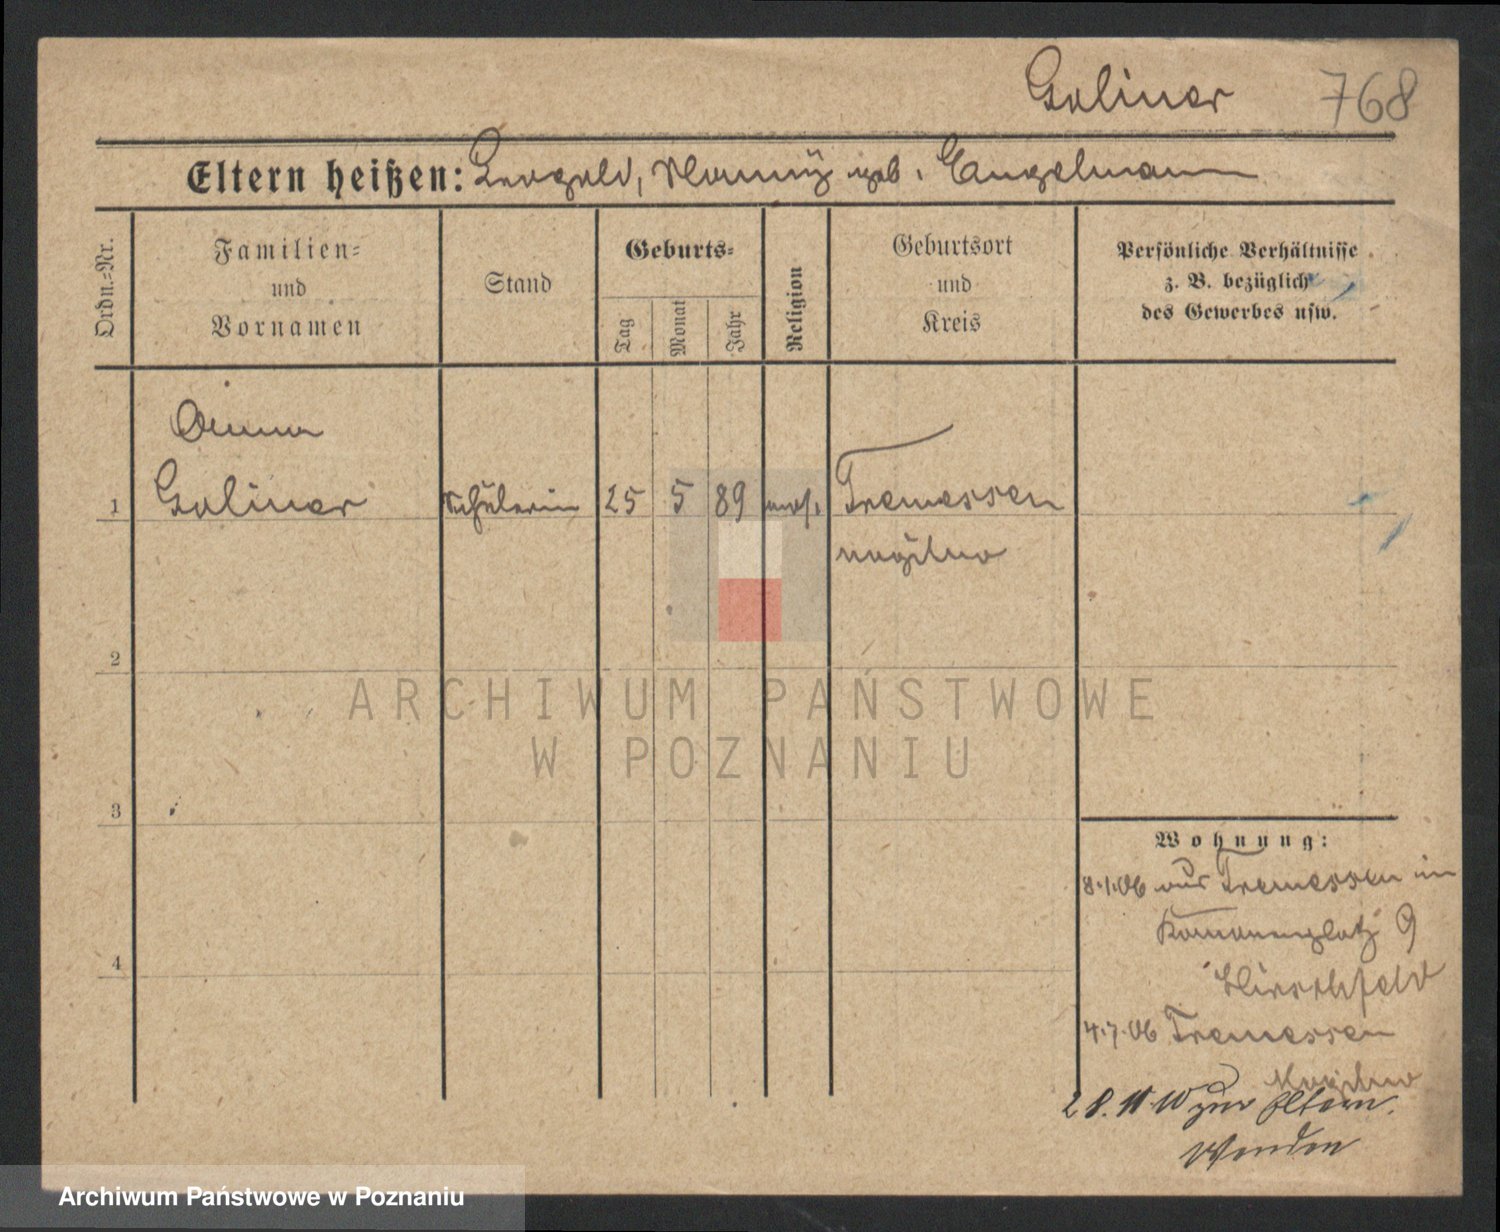 Goliner 768
Eltern heißen: Leopold, Nanny geb. Engelmann
Ordn.-Nr.
Familien-
und
Vornamen
Stand
Geburts-
Tag
Monat
Jahr
Religion
Geburtsort
und
Kreis
Persönliche Verhältnisse
z. B. bezüglich
des Gewerbes usw.
Anna
1 Goliner Schülerin 25 5 89 mos. Tremessen
Mogilno
2
3
4
ARCHIWUM PAŃSTWOWE
W POZNANIU
Wohnung:
8.1.06 aus Tremessen in
Hirschfeld
4.7.06 Tremessen
Mogilno
zur Eltern.
Wenden
Archiwum Państwowe w Poznaniu